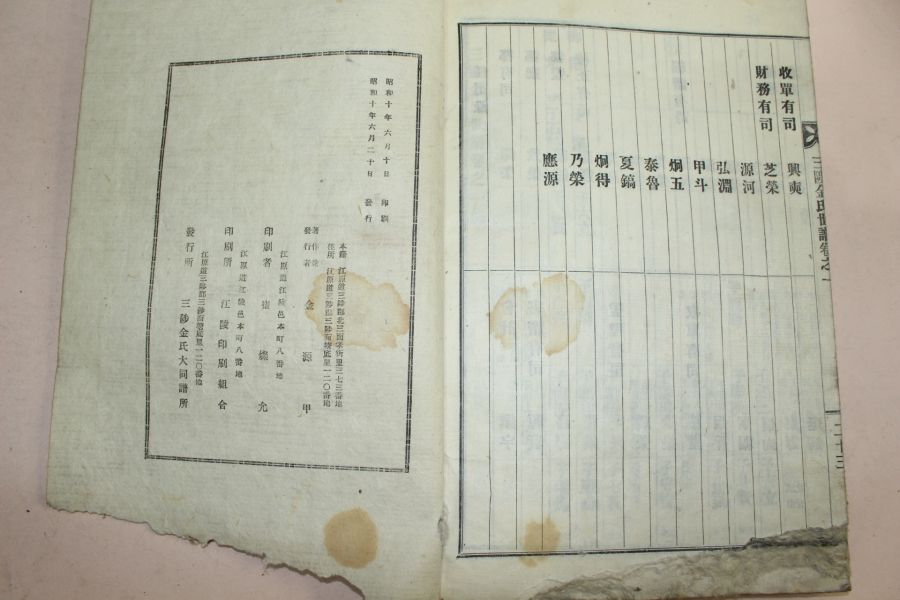 三陟金氏世譜卷之一
二十三
收單有司
興奭
財務有司
芝榮
源河
弘淵
甲斗
炯五
泰魯
夏鎬
炯得
乃榮
應源
昭和十年六月十日 印刷
昭和十年六月二十日 發行
本籍 江原道三陟郡北三面
住所 江原道三陟郡三陟面塘底里一二〇番地
著作兼
發行者 金源甲
江原道江陵邑本町八番地
印刷者 崔燦允
江原道江陵邑本町八番地
印刷所 江陵印刷組合
江原道三陟郡三陟面塘底里一二〇番地
發行所 三陟金氏大同譜所